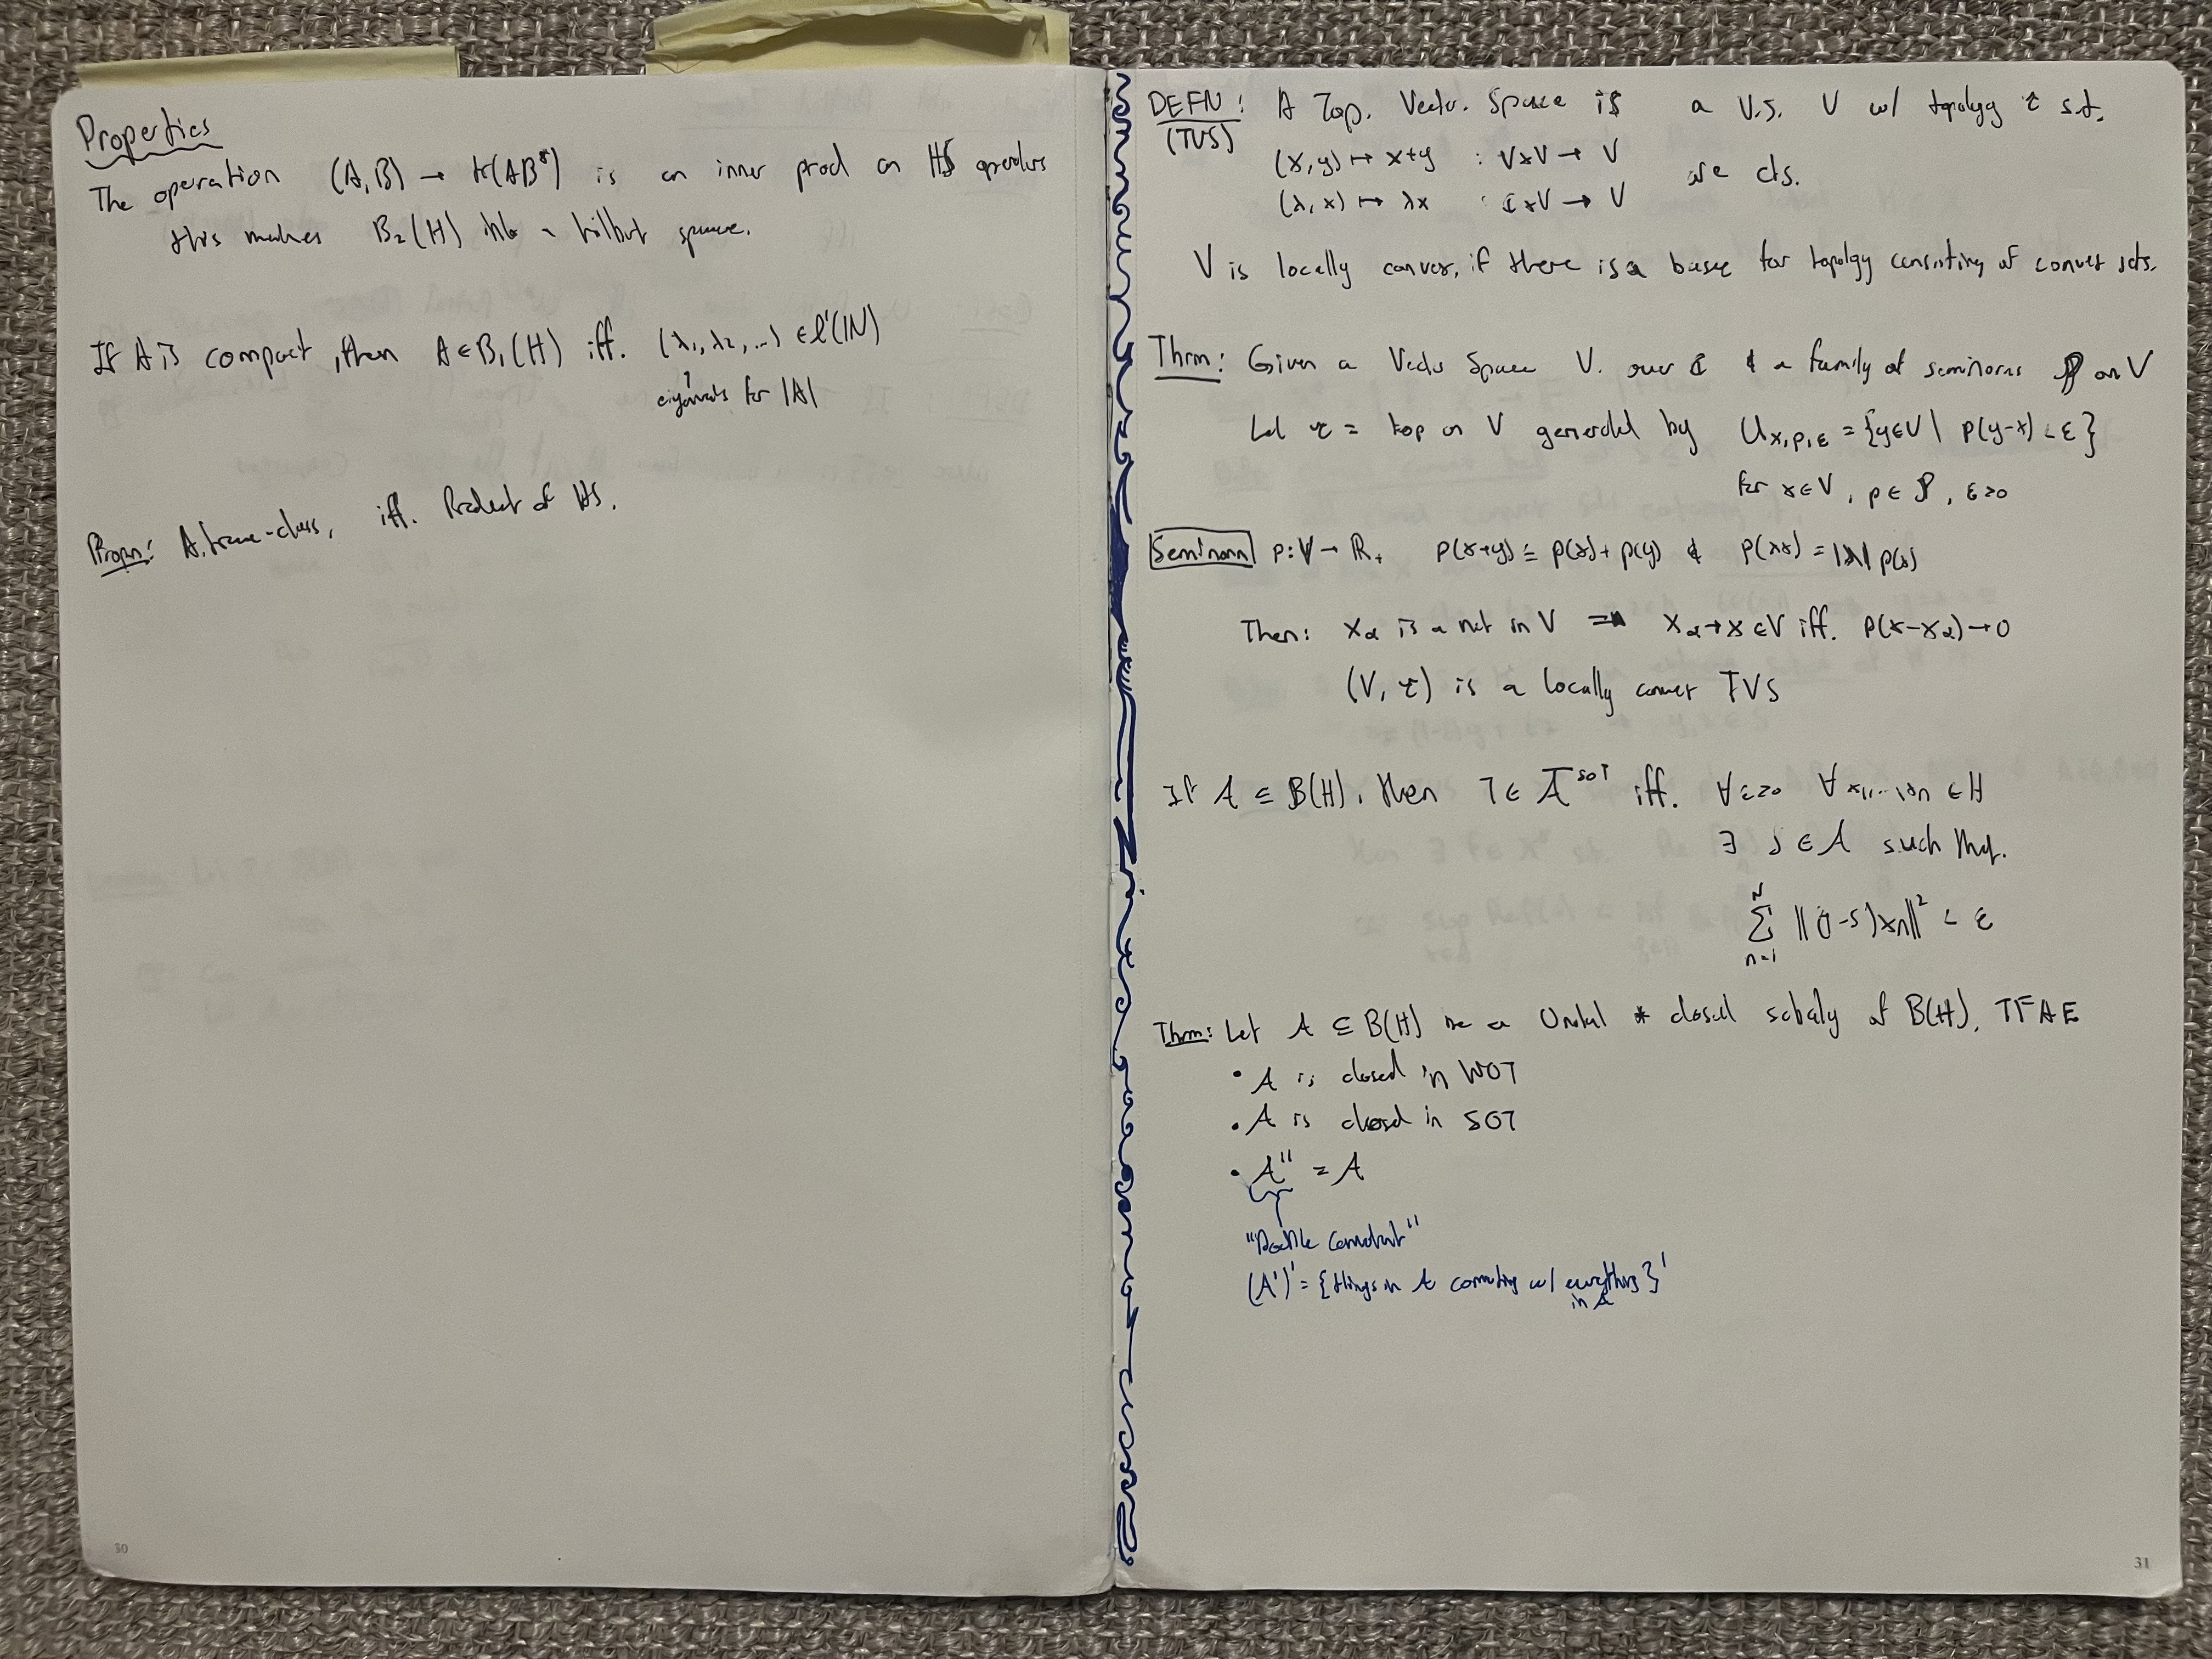 Properties
The operation (A,B) → tr(AB*) is an inner prod on HS operators
this makes B₂(H) into a hilbert space.
If A is compact, then A ∈ B₁(H) iff. (λ₁, λ₂, ...) ∈ l¹(ℕ)
↑
eigenvals for |A|
Propn: A trace-class, iff. Product of HS.
30
DEFN: A Top. Vector Space is a V.S. V w/ topology τ s.t.
(TVS)
(x,y) ↦ x+y : V×V → V
(λ,x) ↦ λx : ℂ×V → V are cts.
V is locally convex, if there is a base for topology consisting of convex sets.
Thm: Given a Vector Space V over ℂ & a family of seminorms P on V
Let τ = top on V generated by U_{x,p,ε} = {y∈V | p(y-x) < ε}
for x∈V, p∈P, ε>0
Seminorm p: V → R₊ p(x+y) ≤ p(x)+p(y) & p(λx) = |λ| p(x)
Then: x_α is a net in V ⇒ x_α → x ∈ V iff. p(x-x_α) → 0
(V, τ) is a locally convex TVS
If A ⊆ B(H), then T ∈ Ā^{SOT} iff. ∀ε>0 ∀x₁,...,xₙ ∈ H
∃ S ∈ A such that.
∑_{n=1}^{N} ||(T-S)xₙ||² < ε
Thm: Let A ⊆ B(H) be a Unital * closed subalg of B(H). TFAE
• A is closed in WOT
• A is closed in SOT
• A'' = A
"Double Commutant"
(A')' = {things in A commuting w/ everything in A}'
31